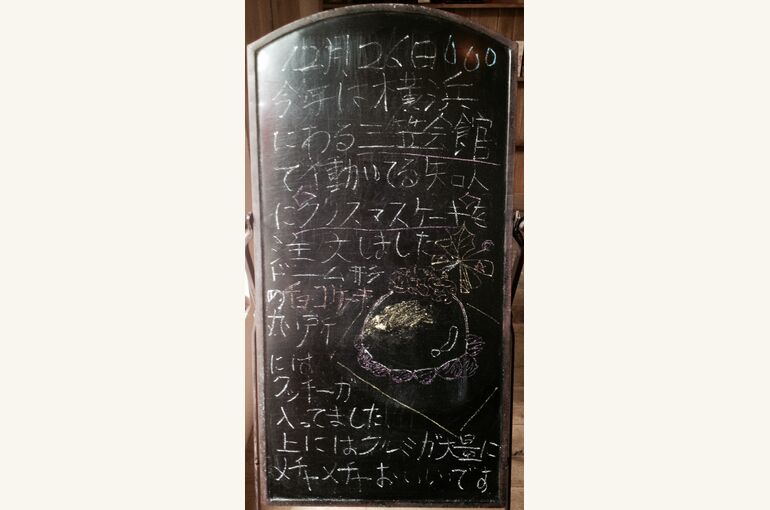 12月26日
今年は横浜
にある三笠会館
で働いてる知人
にクリスマスケーキを
注文しました
ドーム形
のチョコケーキ
には
クッキーが
入ってました
上にはクルミが大量に
メチャメチャおいしいです